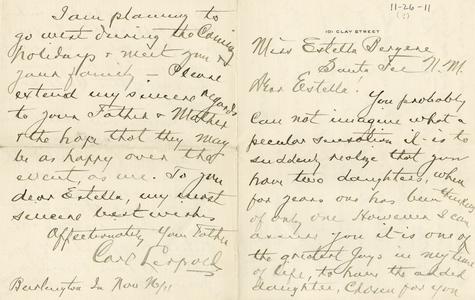 11-26-11
(?)
101 CLAY STREET
Miss Estella Bergere
Santa Fee N.M.
Dear Estella:
You probably
can not imagine what a
peculiar sensation it is to
suddenly realize that you
have two daughters, when
for years one has been thinking
of only one However I can
assure you it is one of
the greatest Joys in my time
of life, to have the added
daughter, Chosen for you
I am planing to
go west during the Coming
holidays & meet you &
your family – Please
extend my sincere regards
to your Father & Mother
& the hope that they may
be as happy over the
event, as me. To you
dear Estella, my most
sincere best wishes
Affectionately Your Father
Carl Leopold
Burlington Ia Nov 26/11